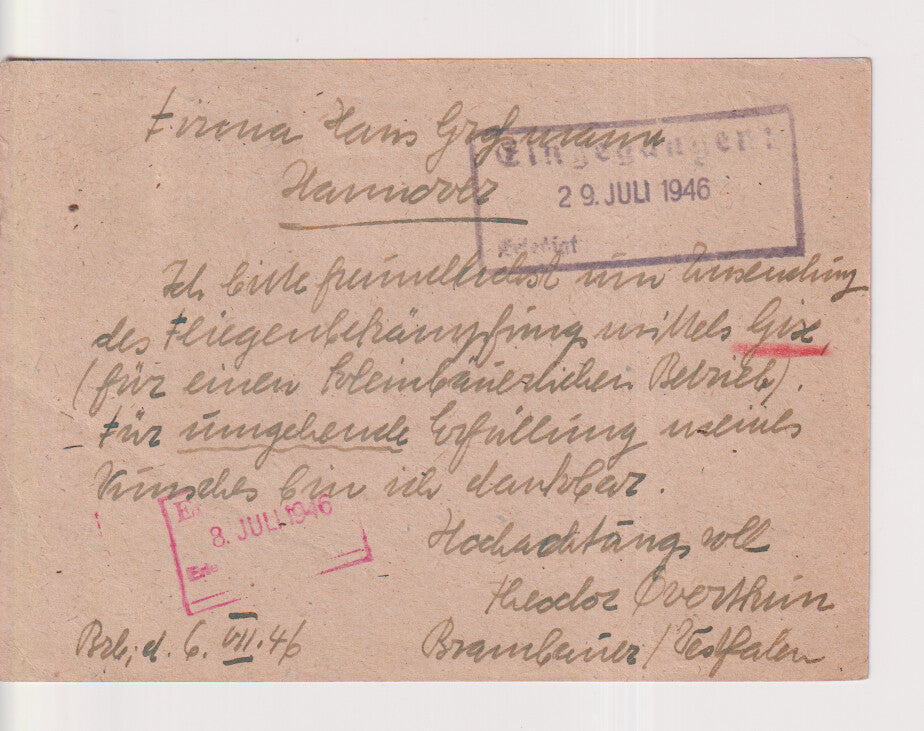 Firma Hans Großmann
Hannover
Eingegangen:
29. JULI 1946
Erledigt
Ich bitte freundlichst um Zusendung
des Fliegenbekämpfungsmittels Gix
(für einen kleinbäuerlichen Betrieb).
Für umgehende Erfüllung meines
Wunsches bin ich dankbar.
8. JULI 1946
Erle
Hochachtungsvoll
Theodor Overthun
Brb., d. 6. VII. 46
Brambauer / Westfalen